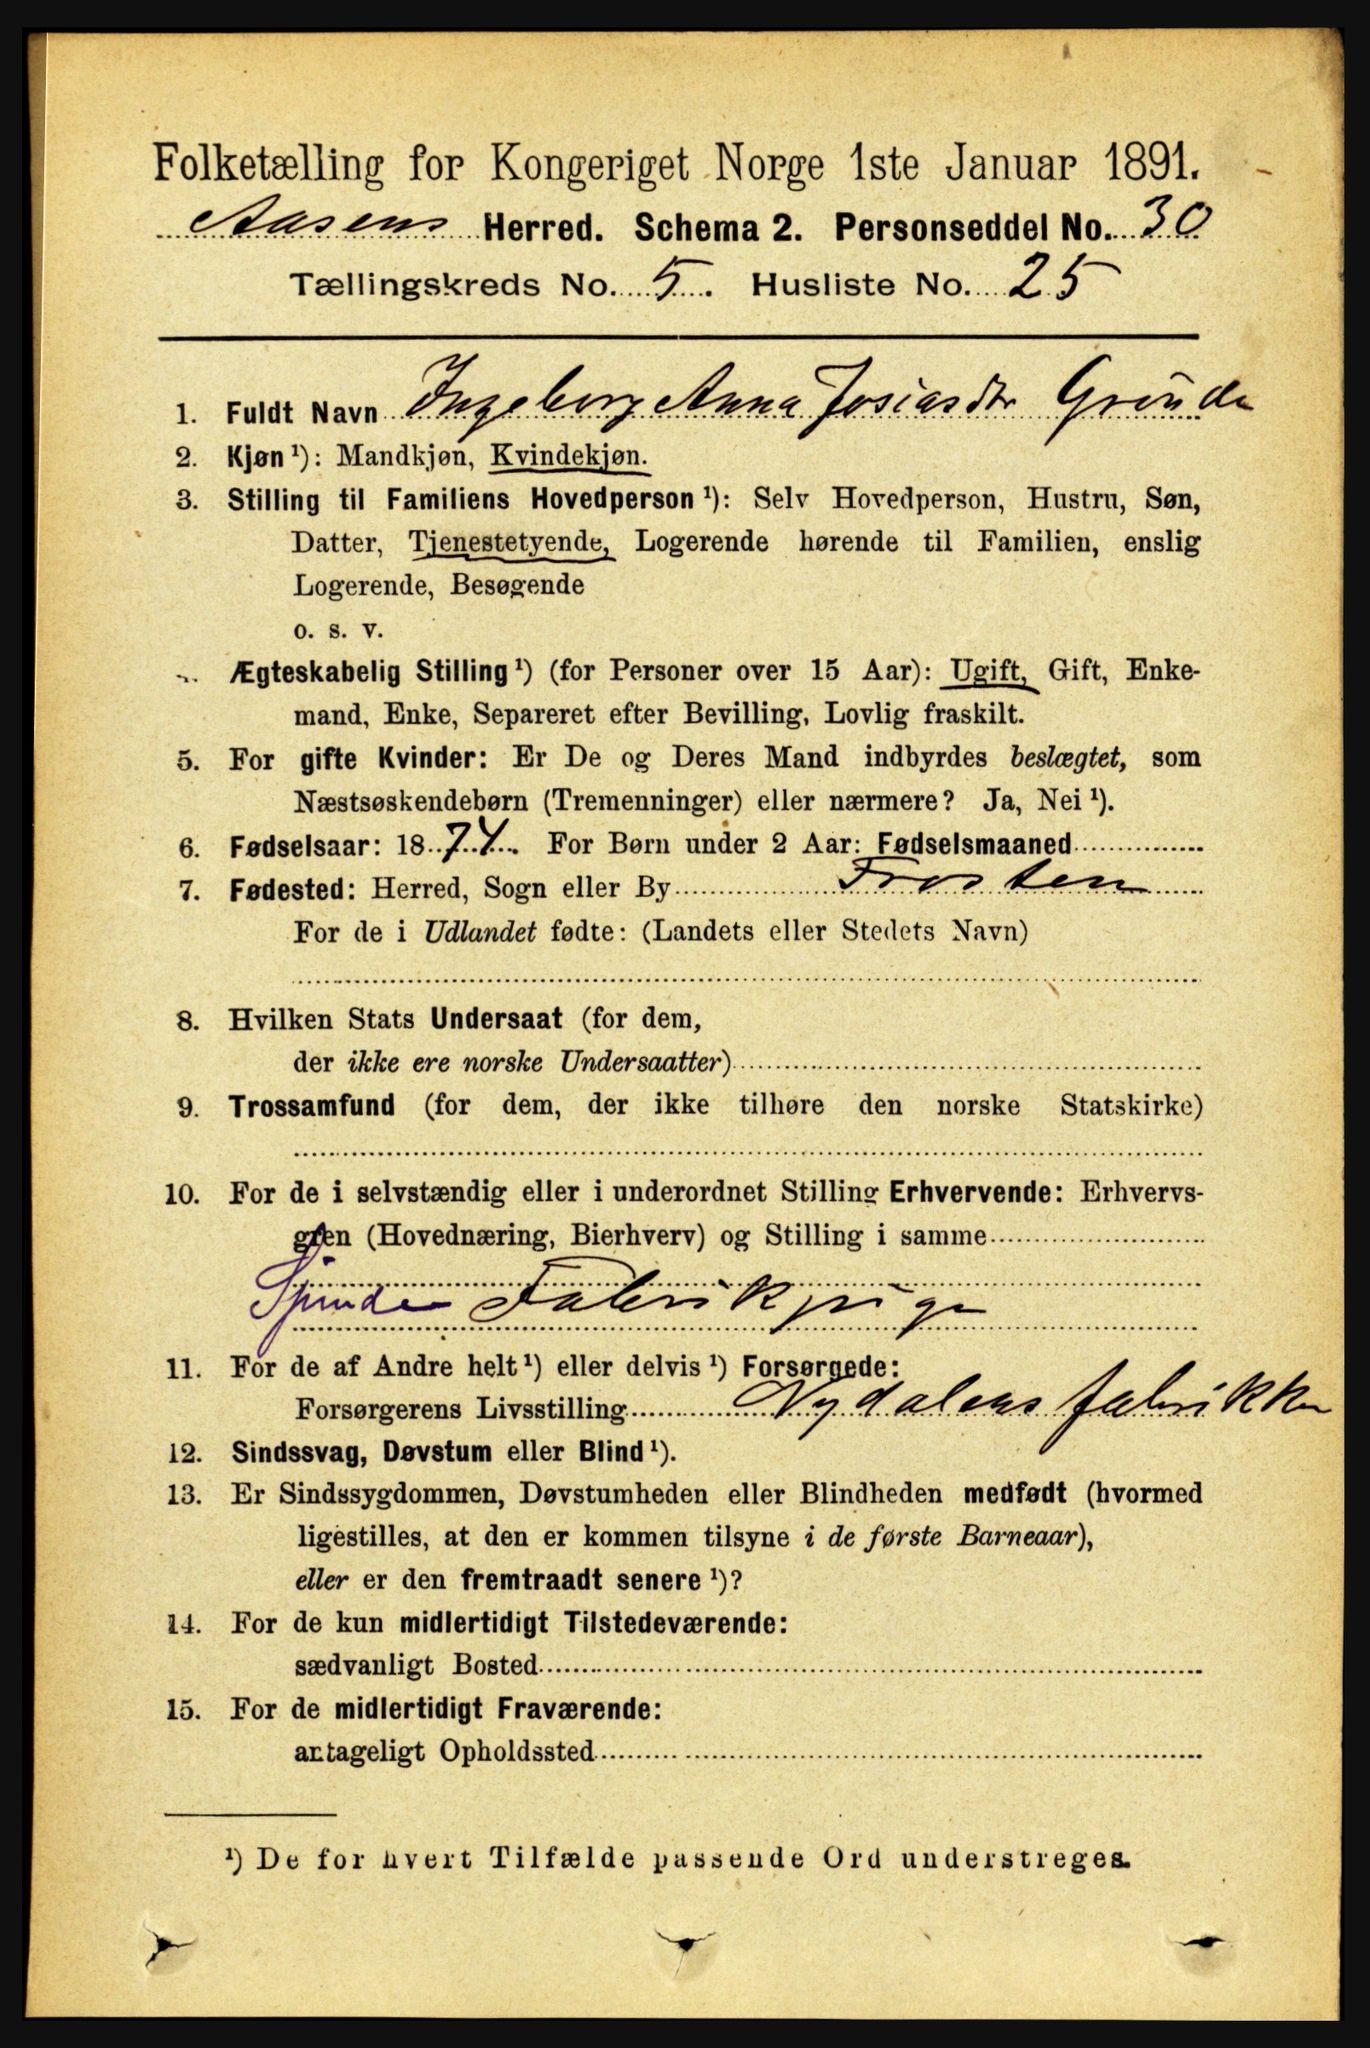 Folketælling for Kongeriget Norge 1ste Januar 1891.
Aasens Herred. Schema 2. Personseddel No. 30
Tællingskreds No. 5. Husliste No. 25
1. Fuldt Navn Ingeborg Anna Josiasdtr
2. Kjøn ¹): Mandkjøn, Kvindekjøn.
3. Stilling til Familiens Hovedperson ¹): Selv Hovedperson, Hustru, Søn,
Datter, Tjenestetyende, Logerende hørende til Familien, enslig
Logerende, Besøgende
o. s. v.
Ægteskabelig Stilling ¹) (for Personer over 15 Aar): Ugift, Gift, Enke-
mand, Enke, Separeret efter Bevilling, Lovlig fraskilt.
5. For gifte Kvinder: Er De og Deres Mand indbyrdes beslægtet, som
Næstsøskendebørn (Tremenninger) eller nærmere? Ja, Nei ¹).
6. Fødselsaar: 1874. For Børn under 2 Aar: Fødselsmaaned
7. Fødested: Herred, Sogn eller By Frosten
For de i Udlandet fødte: (Landets eller Stedets Navn)
8. Hvilken Stats Undersaat (for dem,
der ikke ere norske Undersaatter)
9. Trossamfund (for dem, der ikke tilhøre den norske Statskirke)
10. For de i selvstændig eller i underordnet Stilling Erhvervende: Erhvervs-
gren (Hovednæring, Bierhverv) og Stilling i samme
Fabrikpige
11. For de af Andre helt ¹) eller delvis ¹) Forsørgede:
Forsørgerens Livsstilling Nydalens fabrikker
12. Sindssvag, Døvstum eller Blind ¹).
13. Er Sindssygdommen, Døvstumheden eller Blindheden medfødt (hvormed
ligestilles, at den er kommen tilsyne i de første Barneaar),
eller er den fremtraadt senere ¹)?
14. For de kun midlertidigt Tilstedeværende:
sædvanligt Bosted
15. For de midlertidigt Fraværende:
antageligt Opholdssted
¹) De for hvert Tilfælde passende Ord understreges.